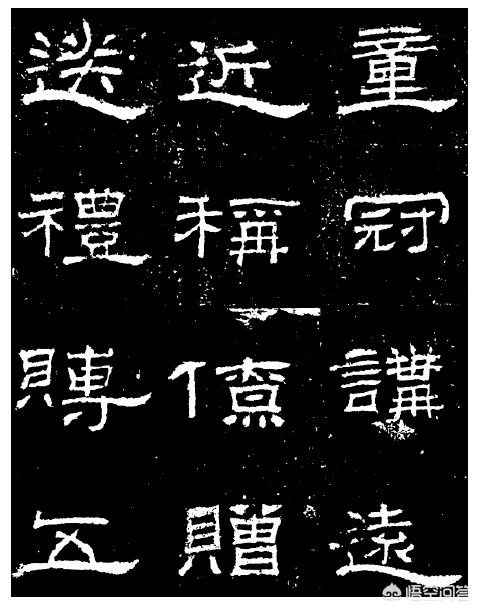 童冠講遠
近稱僚贈
送禮賻五
悟空问答